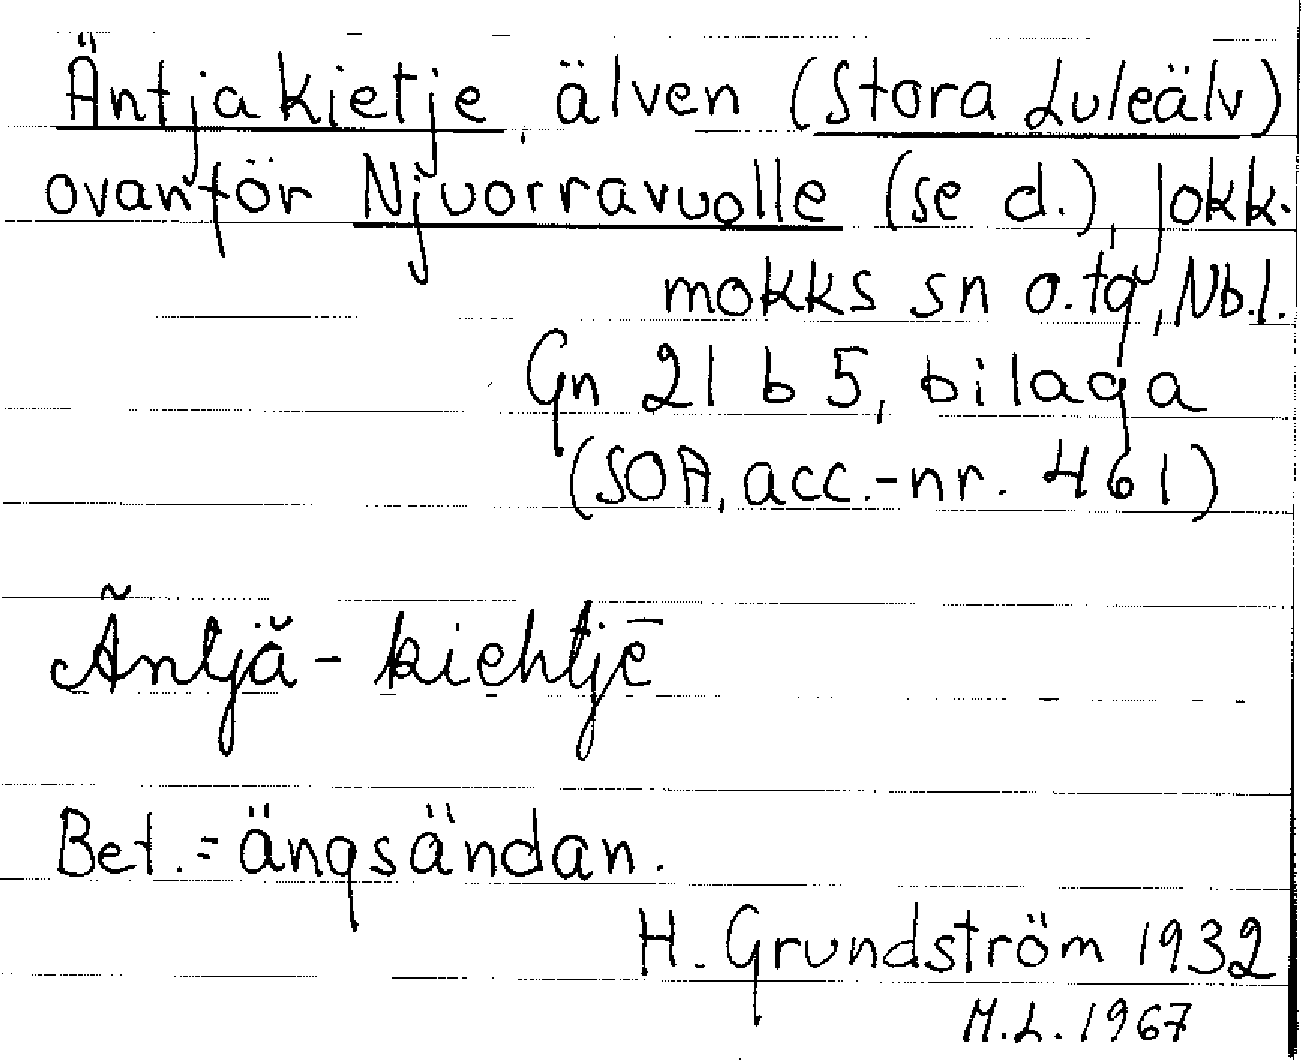 Äntjakietje, älven (Stora Luleälv)
ovanför Njuorravuolle (se d.), Jokk-
mokks sn o. tg, Nb. l.
Gn 21 b 5, bilaga
(SOA, acc.-nr. 461)
Ä̃ntjǟ̆ - kiehtjē
Bet. = ängsändan.
H. Grundström 1932
M.L. 1967